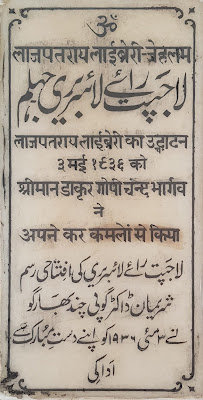 ॐ
लाजपतराय लाईब्रेरी-जेहलम
لاجپت رائے لائبریری جہلم
लाजपतराय लाईब्रेरी का उद्घाटन
३ मई १९३६ को
श्रीमान डाक्टर गोपी चन्द भार्गव
ने
अपने कर कमलों से किया
لاجپت رائے لائبریری کی افتتاحی رسم
شریمان ڈاکٹر گوپی چند بھارگو
نے ۳ مئی ۱۹۳۶ کو اپنے دست مبارک سے
ادا کی